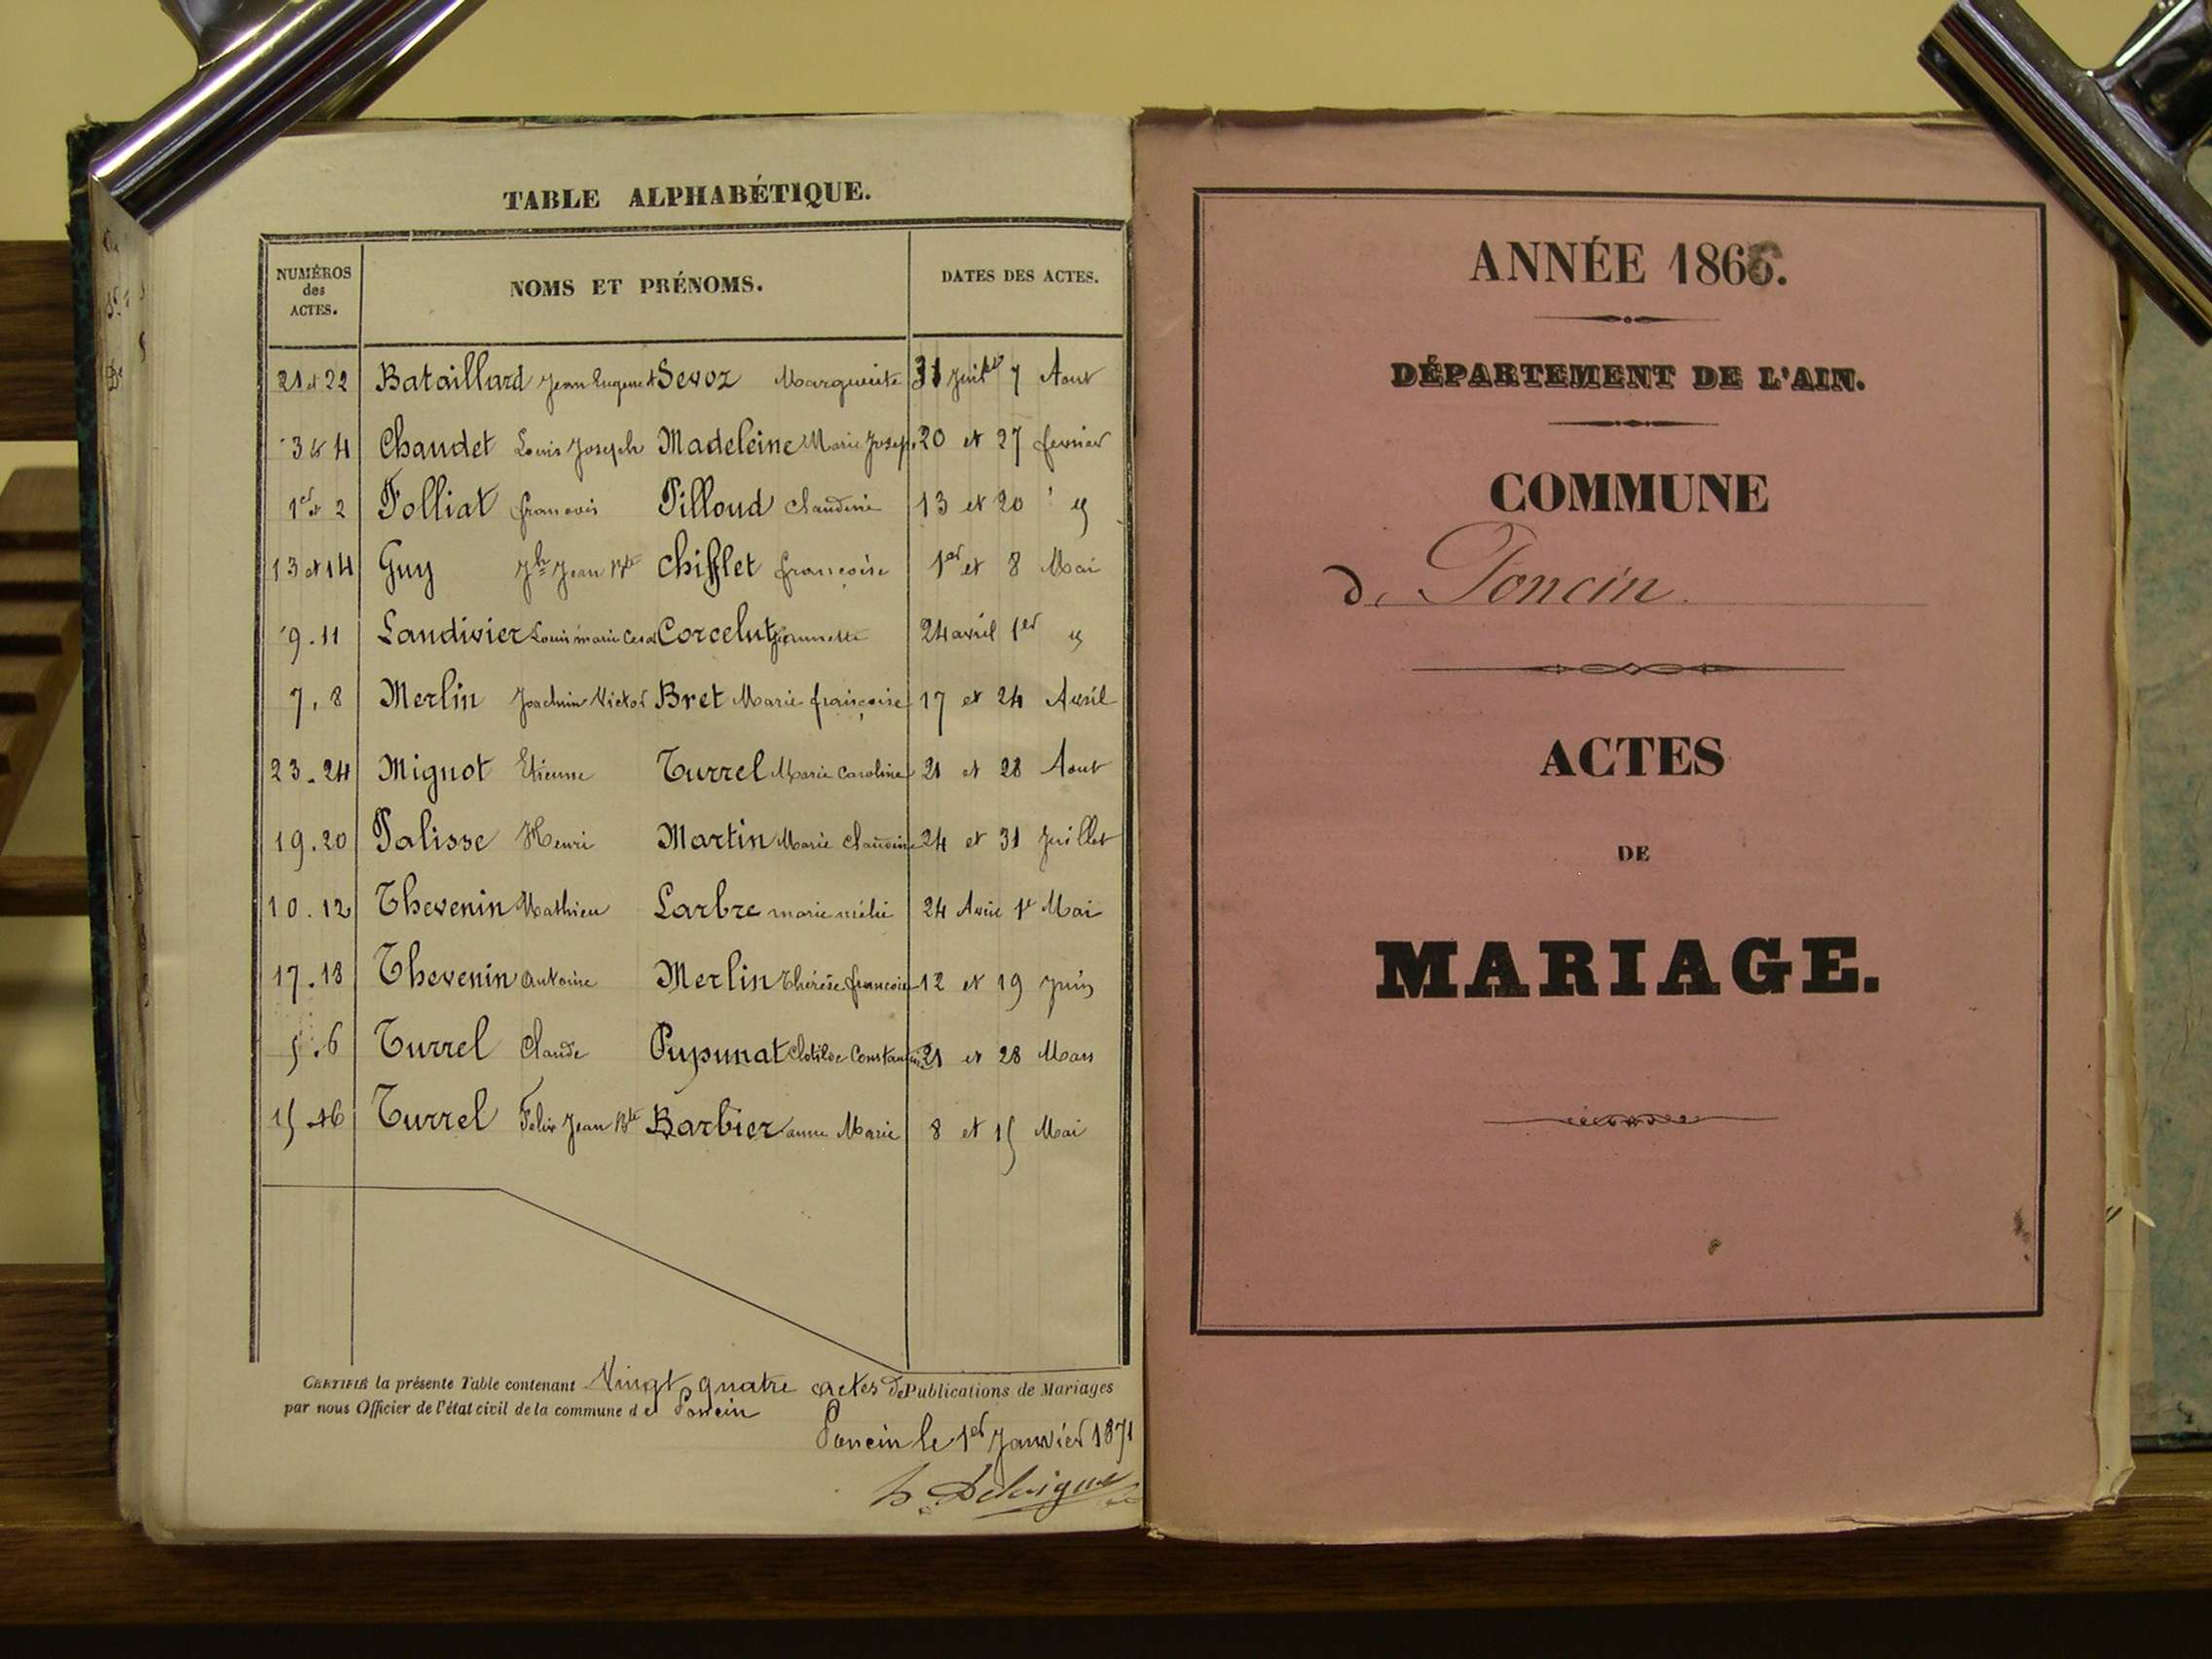 TABLE ALPHABÉTIQUE.
NUMÉROS des ACTES. NOMS ET PRÉNOMS. DATES DES ACTES.
21 et 22 Bataillard Jean Eugene et Sevoz Marguerite 31 Juillet 7 Aout
3 et 4 Chaudet Louis Joseph Madeleine Marie Josep. 20 et 27 fevrier
1er et 2 Folliat francois Pilloud Claudine 13 et 20 " "
13 et 14 Guy Jh Jean Bte Chifflet françoise 1er et 8 Mai
9 . 11 Landivier Louis marie Cesar Corcelut Jeannette 24 avril 1er "
7 . 8 Merlin Joachim Victor Bret Marie françoise 17 et 24 Avril
23 . 24 Mignot Etienne Turrel Marie Caroline 21 et 28 Aout
19 . 20 Palisse Henri Martin Marie Claudine 24 et 31 Juillet
10 . 12 Thevenin Mathieu Larbre marie 24 Avril 1er Mai
17 . 18 Thevenin Antoine Merlin Thérèse francoise 12 et 19 Juin
5 . 6 Turrel Claude Pupunat Clotilde Constantine 21 et 28 Mars
15 . 16 Turrel Felix Jean Bte Barbier anne Marie 8 et 15 Mai
CERTIFIÉ la présente Table contenant Vingt quatre actes de Publications de Mariages
par nous Officier de l'état civil de la commune de Poncin
Poncin le 1er Janvier 1871
ANNÉE 1866.
DÉPARTEMENT DE L'AIN.
COMMUNE
de Poncin
ACTES
DE
MARIAGE.